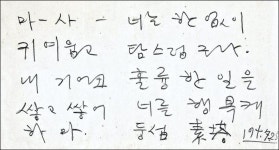 마-사- 너는 한 없이
귀여웁고 탐스럽고나.
내 기어코 훌륭한 일을
쌓고 쌓어 너를 행복케
하마. 둥섭 素塔